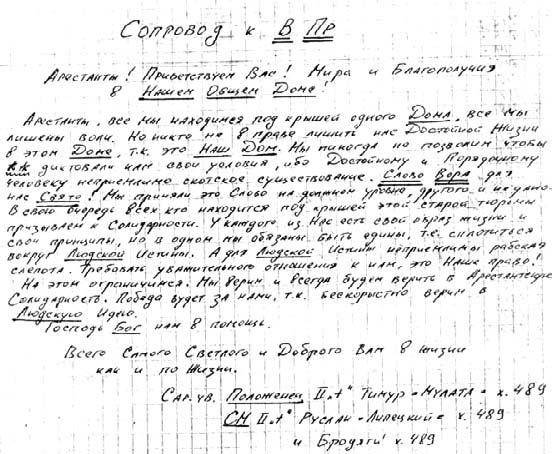 Сопровод к В Пр
Арестанты! Приветствуем Вас! Мира и Благополучия
в Нашем Общем Доме!
Арестанты, все мы находимся под крышей одного Дома, все мы
лишены воли. Но никто не в праве лишить нас Достойной Жизни
в этом Доме, т.к. это Наш Дом. Мы никогда не позволим чтобы
диктовали нам свои условия, ибо Достойному и Порядочному
человеку неприемлимо скотское существование. Слово Вора для
нас Свято! Мы приняли это Слово на должном уровне, другого и не дано.
В свою очередь всех кто находится под крышей этой старой тюрьмы
призываем к Солидарности. У каждого из Нас есть свой образ жизни и
свои принципы, но в одном мы обязаны быть едины, т.е. сплотиться
вокруг Людской Истины. А для Людской Истины неприемлима рабская
слепота. Требовать уважительного отношения к нам, это Наше право!
На этом ограничимся. Мы верим и всегда будем верить в Арестантскую
Солидарность. Победа будет за нами, т.к. бескорыстно верим в
Людскую Идею.
Господь Бог нам в помощь.
Всего Самого Светлого и Доброго Вам в жизни
как и по Жизни.
С ар. ув. Положенец II "т" Тимур = Мулата = х. 489
СМ II "т" Руслан = Липецкий = х. 489
и Бродяги х. 489